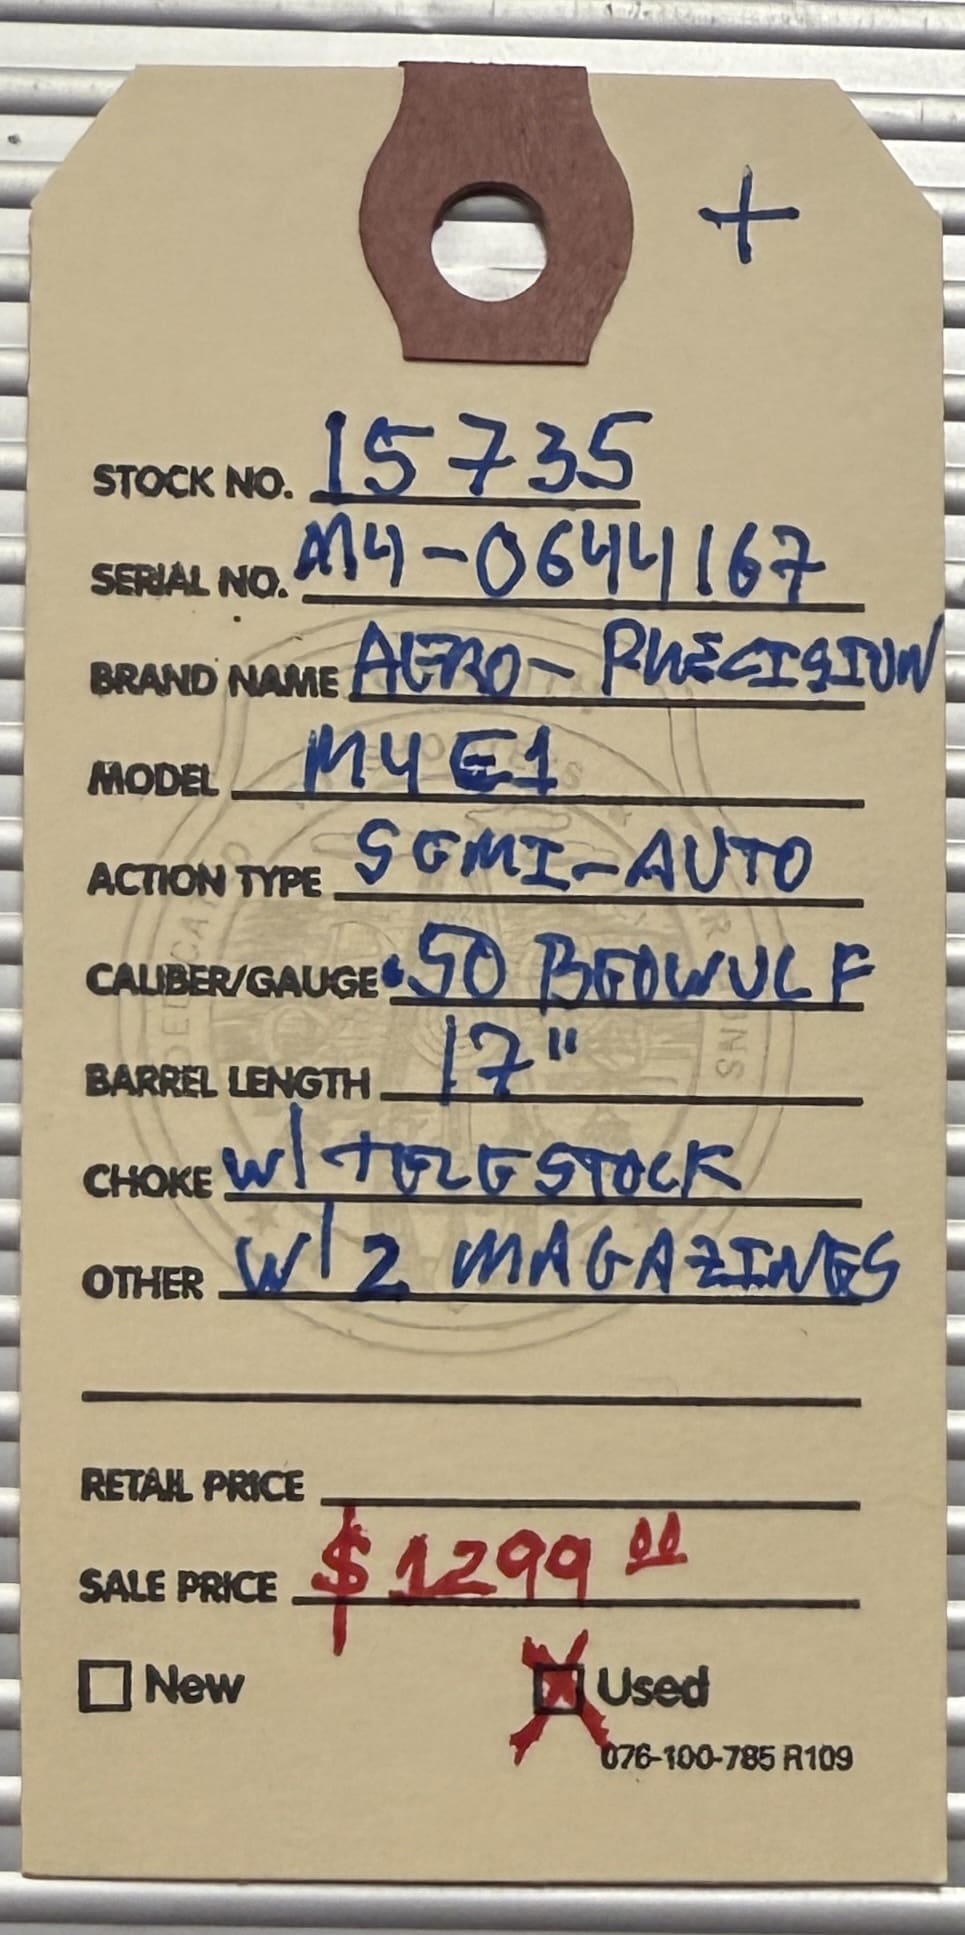 +
STOCK NO. 15735
SERIAL NO. M4-0644167
BRAND NAME AERO-PRECISION
MODEL M4E1
ACTION TYPE SEMI-AUTO
CALIBER/GAUGE .50 BEOWULF
BARREL LENGTH 17"
CHOKE W/ TELESTOCK
OTHER W/ 2 MAGAZINES
RETAIL PRICE
SALE PRICE $1299 00
New X Used
076-100-785 R109